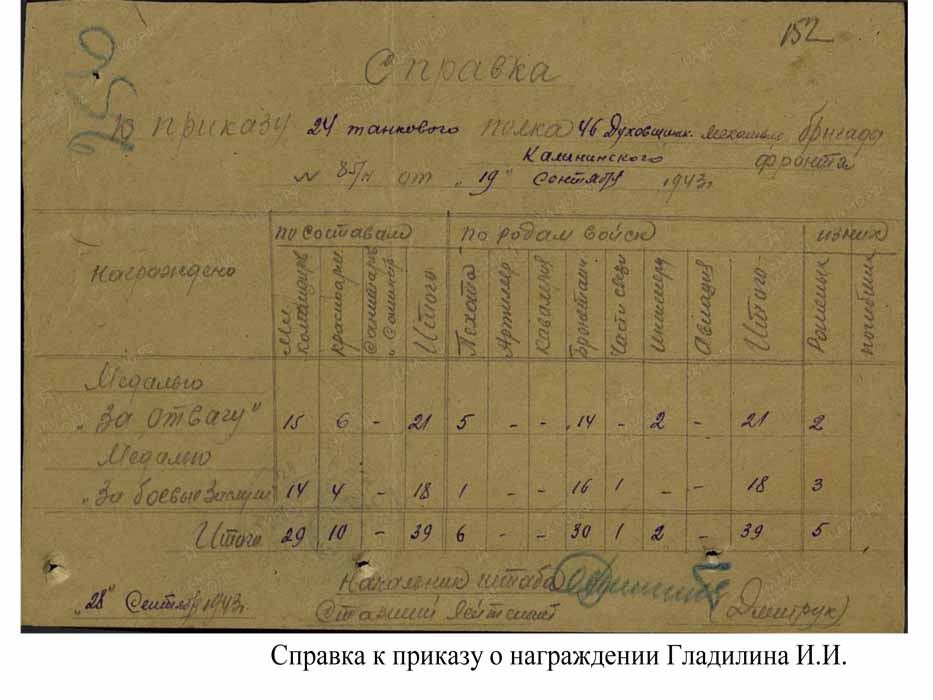 152
Справка
к приказу 24 танкового полка 46 Духовщинк. механизв. бригада
Калининского фронта
№ 85/н от "19" Сентября 1943г
по составам по родам войск из них
Награждено Мл. командиры красноарм Итого Пехота Артиллер Кавалерия Бронетанк. Части связи Инженерн Авиация Итого Раненых погибших
Медалью
"За отвагу" 15 6 - 21 5 - - 14 - 2 - 21 2
Медалью
"За боевые Заслуги" 14 4 - 18 1 - - 16 1 - - 18 3
Итого 29 10 - 39 6 - - 30 1 2 - 39 5
Начальник штаба
"28" Сентября 1943г. Старший лейтенант (Дмитрук)
Справка к приказу о награждении Гладилина И.И.